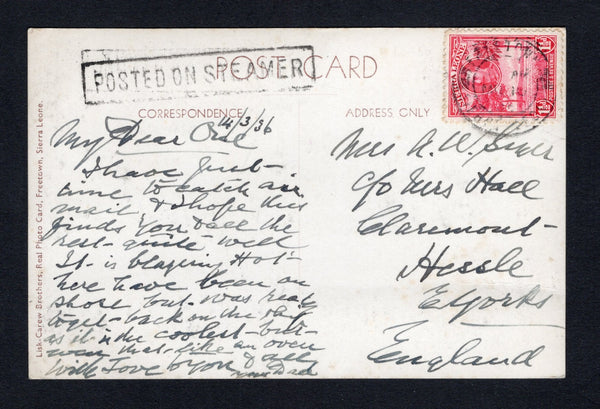 POSTED ON STEAMER
POST CARD
SIERRA LEONE
CORRESPONDENCE
ADDRESS ONLY
14/3/36
My Dear
I have just
time to catch air
mail & I hope this
finds you & all the
rest quite well
It is blazing Hot
here have been on
shore but was
to get back on the
as it is the coolest
even that like an oven
with Love to you & all
your Dad
Mrs A. W.
c/o Mrs Hall
Claremont
Hessle
E Yorks
England
Lisk-Carew Brothers, Real Photo Card, Freetown, Sierra Leone.